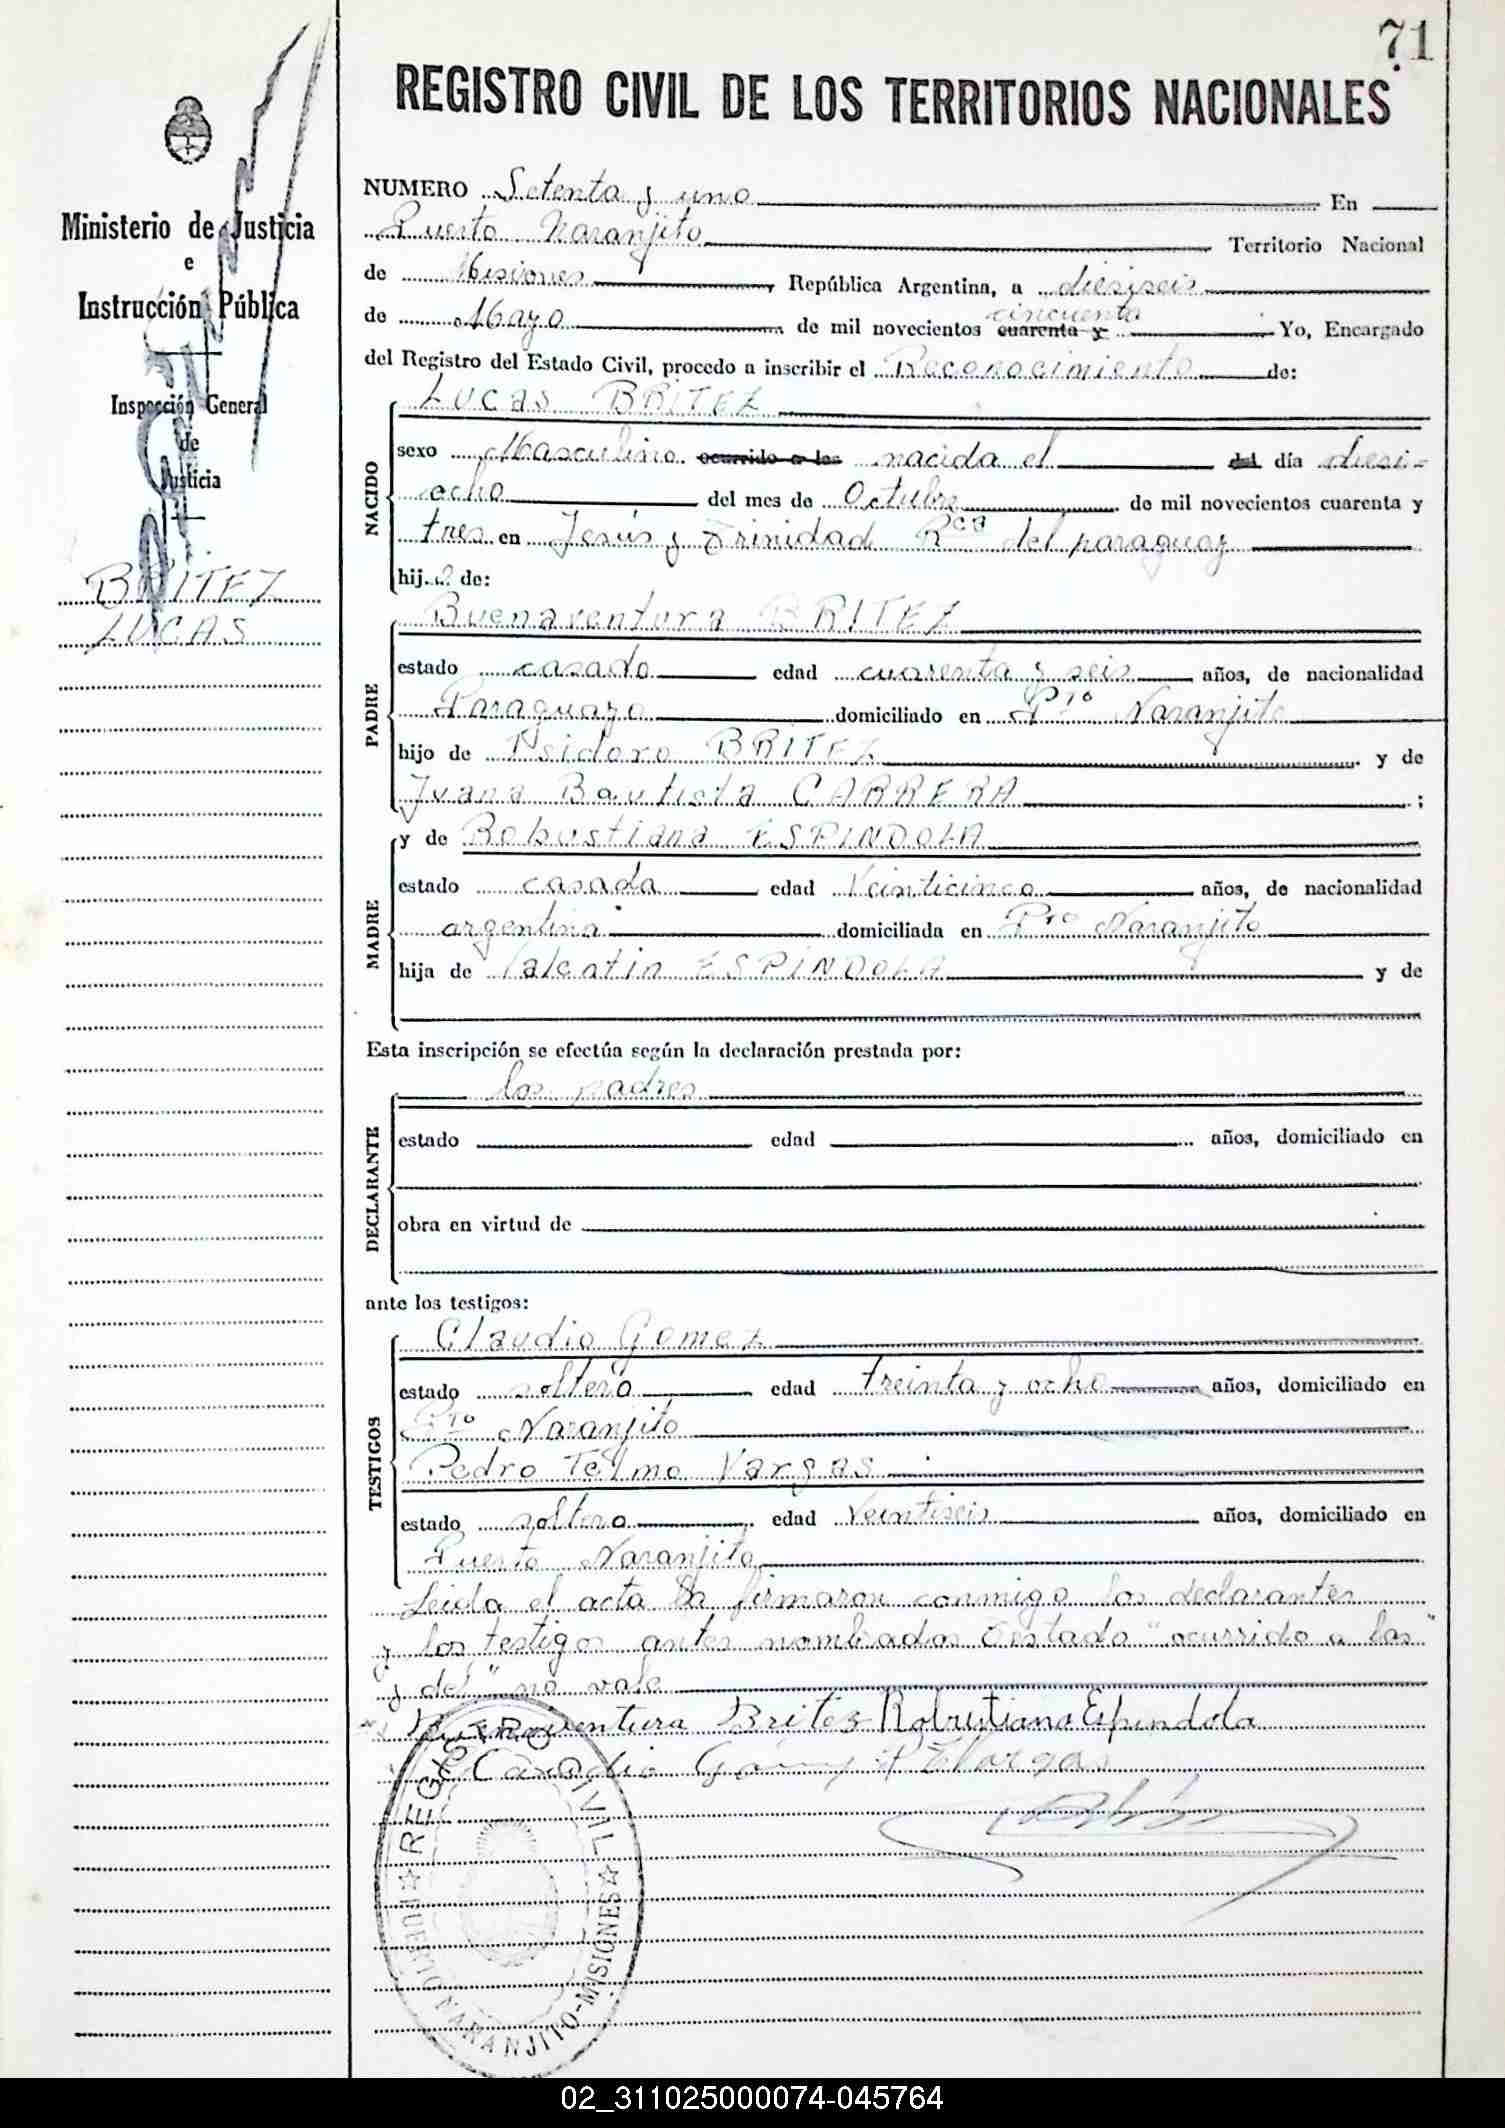 71
REGISTRO CIVIL DE LOS TERRITORIOS NACIONALES
Ministerio de Justicia
e
Instrucción Pública
Inspección General
de
Justicia
BRITEZ
LUCAS
NUMERO Setenta y uno En
Puerto Naranjito Territorio Nacional
de Misiones, República Argentina, a diesiseis
cincuenta
de Mayo de mil novecientos cuarenta y Yo, Encargado
del Registro del Estado Civil, procedo a inscribir el Reconocimiento de:
LUCAS BRITEZ
NACIDO
sexo Masculino ocurrido a las nacida el del día diesi-
ocho del mes de Octubre de mil novecientos cuarenta y
tres en Jesús y Trinidad Rca del paraguay
hijo de:
Buenaventura BRITEZ
PADRE
estado casado edad cuarenta y seis años, de nacionalidad
Paraguayo domiciliado en Pto Naranjito
hijo de Isidoro BRITEZ y de
Juana Bautista CARRERA ;
y de Robustiana ESPINDOLA
MADRE
estado casada edad Veinticinco años, de nacionalidad
argentina domiciliada en Pto Naranjito
hija de Valentin ESPINDOLA y de
Esta inscripción se efectúa según la declaración prestada por:
los padres
DECLARANTE
estado edad años, domiciliado en
obra en virtud de
ante los testigos:
Claudio Gomez
TESTIGOS
estado soltero edad treinta y ocho años, domiciliado en
Pto Naranjito
Pedro Telmo Vargas
estado soltero edad Veintiseis años, domiciliado en
Puerto Naranjito
Leida el acta la firmaron conmigo los declarantes
y los testigos antes nombrados testado "ocurrido a las"
y del" no vale
Buenaventura Britez Robustiana Espindola
Claudio Gómez P T Vargas
REGISTRO CIVIL
PUERTO NARANJITO-MISIONES
02_311025000074-045764